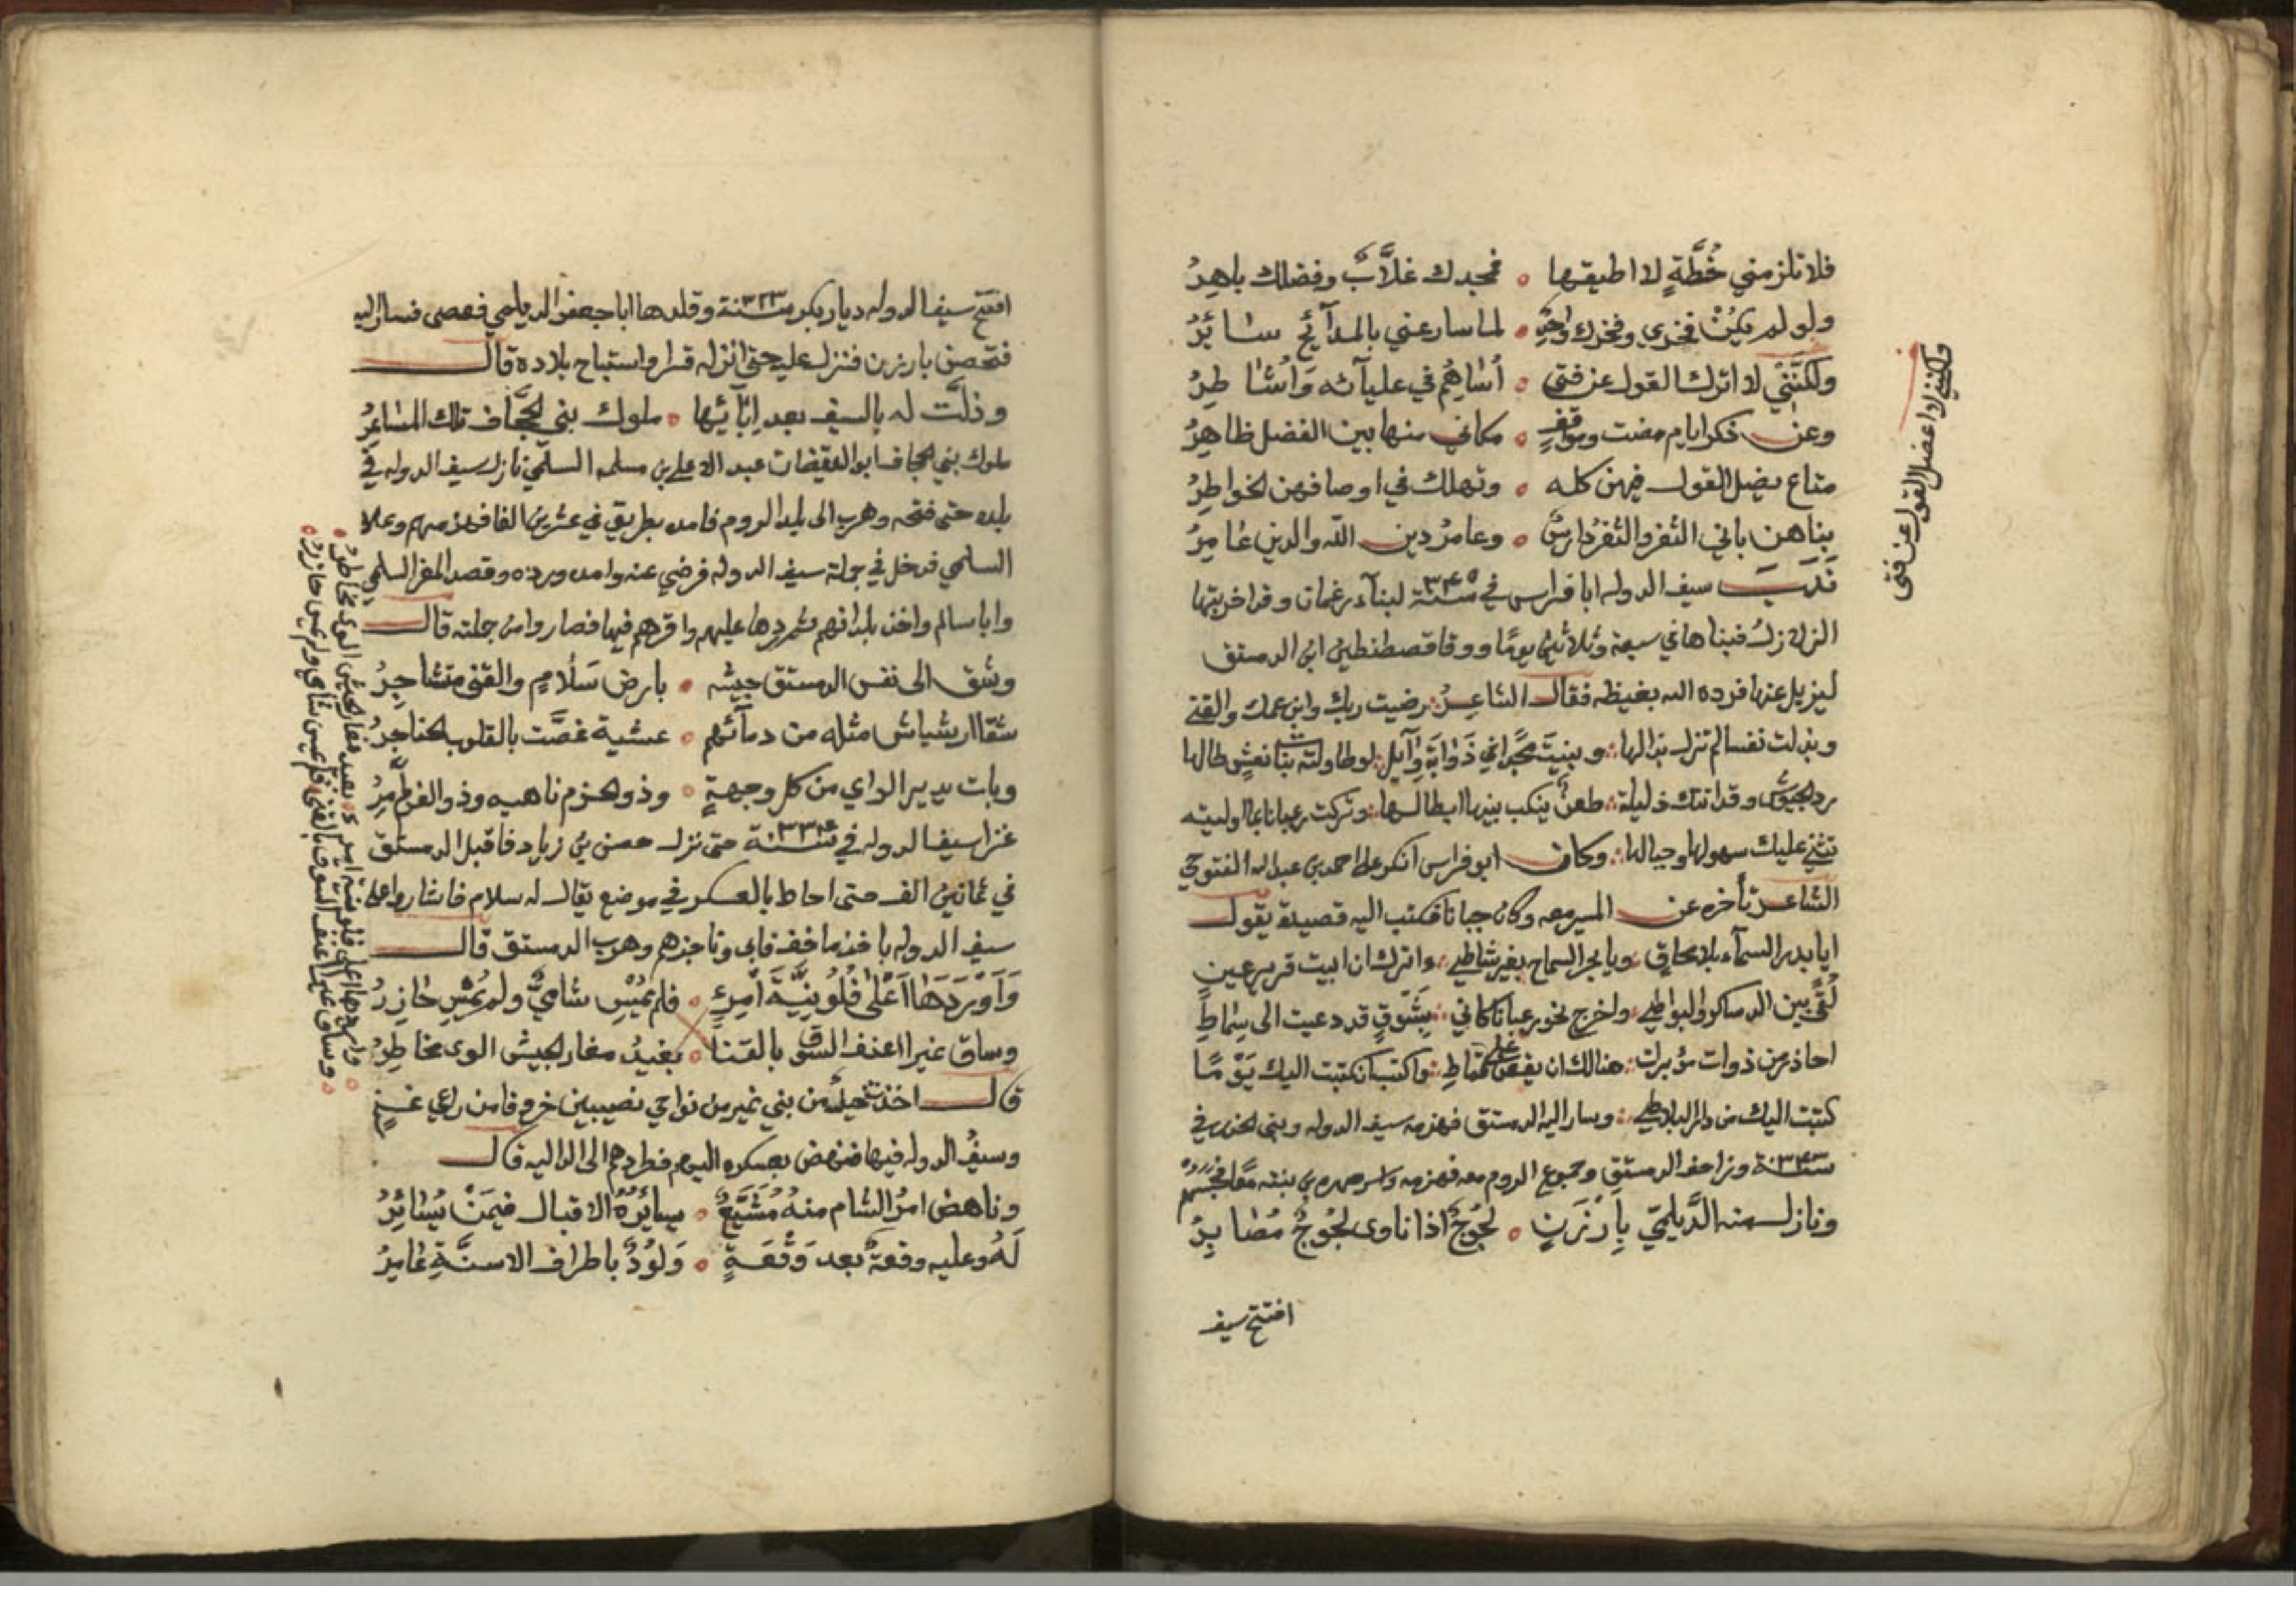 فلا تلزمني خُطَّةٍ لا اطيقها ه فمجدك غلَّابٌ وفضلك باهِرُ
ولو لم يكُنْ فخري وفخرك واحِدٍ ه لما سار عني بالمدآئح سائرُ
ولكنَّني لا اترك القول عن فتى ه أساهُم في عليآئه وَاُشاطِرُ
وعن ذكر ايام مضت ومواقفٍ ه مكاني منها بين الفضل ظاهِرُ
متاع يضل القول فيهن كله ه وتهلك في اوصافهن الخواطِرُ
بناهن باني الثغر والثغرُ دارسٌ ه وعامرُ دين الله والدين غامِرُ
نَدَبَ سيف الدوله ابا فراس في سنة ٣٤٥ لبنآء رعبان وقد اخربتها
الزلازلُ فبناها في سبعة وثلاثين يومًا ووفا قصطنطين ابن الدمستق
ليزيل عنها فرده الله بغيظه فقال الشاعِرُ: رضيت ربك وابن عمك والقنى
وبذلت نفسا لم تزل بذالها: وبنيتَ مجدًا في ذَوَابَةِ وَآيل: لو طاولته بنات نعشٍ طالها
رد الجيوش وقد اتتك ذليلة: طعنٌ ينكب بينها ابطالها: وتركت رعبانا بما اوليته
تثني عليك سهولها وجبالها: وكان ابو فراس انكر على احمد بن عبد الله الفتوحي
الشاعر تأخره عن المسير معه وكان جبانا فكتب اليه قصيدة يقول
ايا بدر السمآء بلا محاقٍ: ويا بحر السماح بغير شاطي: ءاترك ان ابيت قرير عين
لُقًى بين الدساكر والبواطي: واخرج نحو رعبانا كاني: بِشَوقٍ قد دعيت الى سِماطِ
احاذر من ذوات هنالك ان يقعن على قماطِ: واكتب ان كتبت اليك يَوْمًا
كتبت اليك من دار البلاطي: وسار اليه الدمستق فهزمه سيف الدوله وبنى الحدث في
سنة ٣٤٣ وزاحف الدمستق وجموع الروم معه فهزمه واسر صهره بن بنته
ونازل منه الدَّيلميّ بِأَرْزَنٍ ه لجُوجٌ اذا ناوى لجُوجٌ مُصابِرُ
افتتح سيف
ولكنني لا اغفل القول عن فتى
افتتح سيف الدوله ديار بكر سنة ٣٢٣ وقلدها ابا جعفر الديلمي فعصى فسار اليه
فتحصن بارزن فنزل عليه حتى انزله قسرا واستباح بلاده قال
وذلَّت له بالسيف بعد اِبآئها ه ملوك بني الجحَّاف تلك المساعِرُ
ملوك بني الجحاف ابو اليقضان عبد الاعلى بن مسلمه السلمي نازل سيف الدوله في
بلده حتى فتحه وهرب الى بلد الروم فامده بطريق في عشرين الفا فهزمهم وعلا
السلمي فدخل في جملة سيف الدوله فرضي عنه وامده ورده وقصد المغر السلمي
وابا سالم واخذ بلدانهم ثم ردها عليهم واقرهم فيها فصاروا من جملته قال
وشق الى نفس الدمستق جيشه ه بارض سَلَامٍ والقنى متشاجِرُ
سقا ارشياش مثله من دمآئهم ه عشية غصَّت بالقلوب الحناجِرُ
وبات يدير الراي من كل وجهةٍ ه وذو الحزم ناهيه وذو الغر آمِرُ
غزا سيف الدوله في سنة ٣٣٤ حتى نزل حصن بن زياد فاقبل الدمستق
في ثمانين الف حتى احاط بالعسكر في موضع يقال له سلام فاشاروا على
سيف الدوله باخذ ما خف فابى وناجزهم وهرب الدمستق قال
وَاَوْرَدَهَا اَعْلى قُلُو بِنِيَّة اَمْرِءٍ ه فلم يُمْسِ شاميٌّ ولم يُمْسِ خازِرُ
وساق غيرا اعنف السوق بالقنا ه بعيدُ مغار الجيش الوى مخاطِرُ
قال اخذت خيلٌ من بني نمير من نواحي نصيبين خرج فامن راعي غنم
وسيفُ الدوله فيها فنهض بعسكره اليهم فطردهم الى الداليه قال
وناهض امرُ الشام منهُ مُشَيَّعٌ ه يسائِرُهُ الاقبال فيمَنْ يُسَائِرُ
لَهُ وعليه وقعةٌ بعد وَقْعَةٍ ه وَلوُدٌ باطراف الاسنَّةِ عَامِرُ
واوردها اعلى قلو بنية امرء ه بعيد مغار الجيش الوى مخاطِرُ
وساق غيرا اعنف السوق بالقنى ه فلم يمس شامي ولم يمس خازرُ